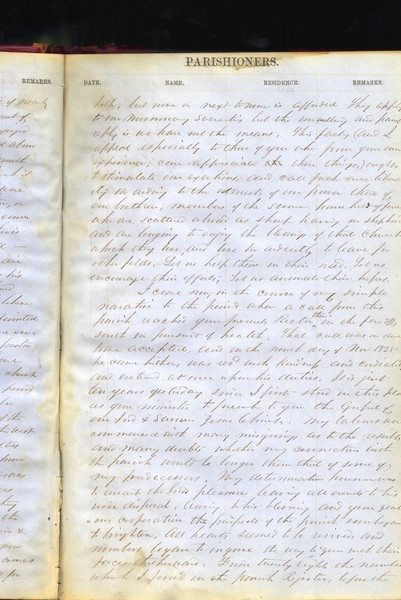 PARISHIONERS.
REMARKS. DATE. NAME. RESIDENCE. REMARKS.
help, but none or next to none is afforded They apply
to our Missionary Societies but the unwilling and painful
reply is we have not the means. The facts, (and I
appeal especially to those of you who from your own
experience, can appreciate them) ought,
to stimulate our exertions and call forth our
in aiding to the extent of our power those of
our brethren members of the same
who are scattered abroad as sheep having no shepherd
and are longing to enjoy the blessings of that Church
which they love, and love so ardently to leave for
other folds. Let us help them in their need. Let us
encourage their efforts, Let us animate their hopes.
I come now in the course of my simple
narrative to the period when a call from this
parish reached your present Rector in the far
south in pursuit of health. That call was in due
time accepted, and on the day of Nov 1838
he came hither, was rec'd with kindness and cordiality
and entered at once upon his duties. It is just
ten years yesterday since I first stood in this place
as your minister to preach to you the Gospel of
our Lord & Saviour Jesus Christ. My labours were
commenced with many misgivings as to the result
and many doubts whether my connection with
the parish would be longer than that of some of
my predecessors. My determination however was
to await the Lord's pleasure leaving all events to his
wise disposal. Under his blessing and your good
cooperation the prospects of the parish soon began
to brighten, All hearts seemed to be revived and
numbers began to inquire the way to Zion with their
faces thitherward. From twenty eight the number
which I found in the parish Register,